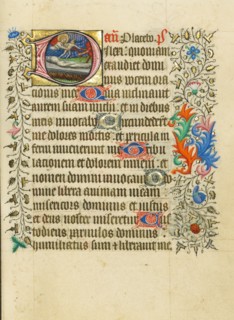 añ. Placebo. ps
Dilexi: quoniam
exaudiet domi
nus vocem ora
cionis mee Quia inclinauit
aurem suam michi et in diebus
meis inuocabo Circumdederunt
me dolores mortis et pericula in
ferni inuenerunt me Tribu
lacionem et dolorem inueni et
nomen domini inuocaui O do
mine libera animam meam
misericors dominus et iustus
et deus noster miseretur Cus
todiens paruulos dominus
humiliatus sum et librauit me.